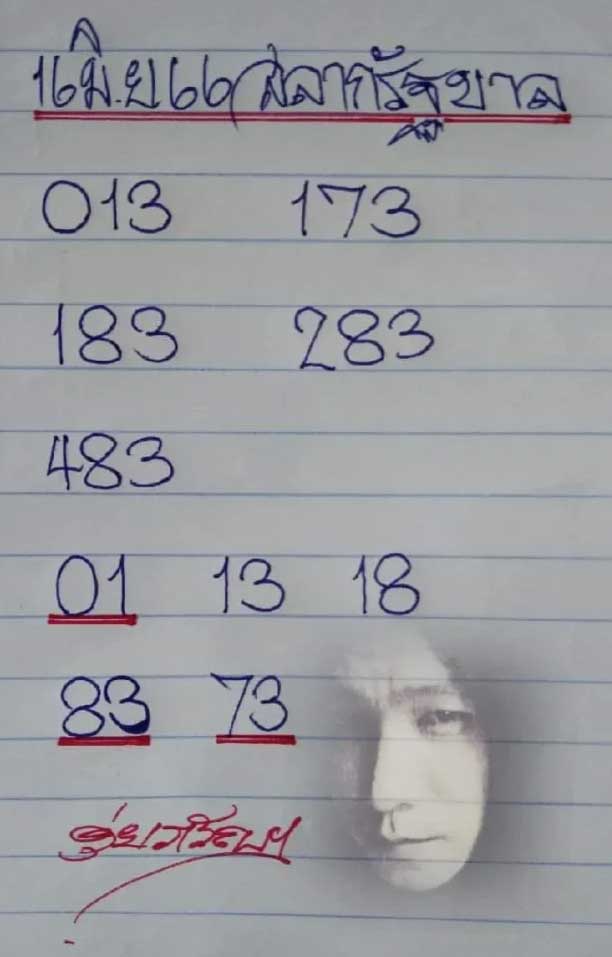 16 มิ.ย 66 สลากรัฐบาล
013 173
183 283
483
01 13 18
83 73